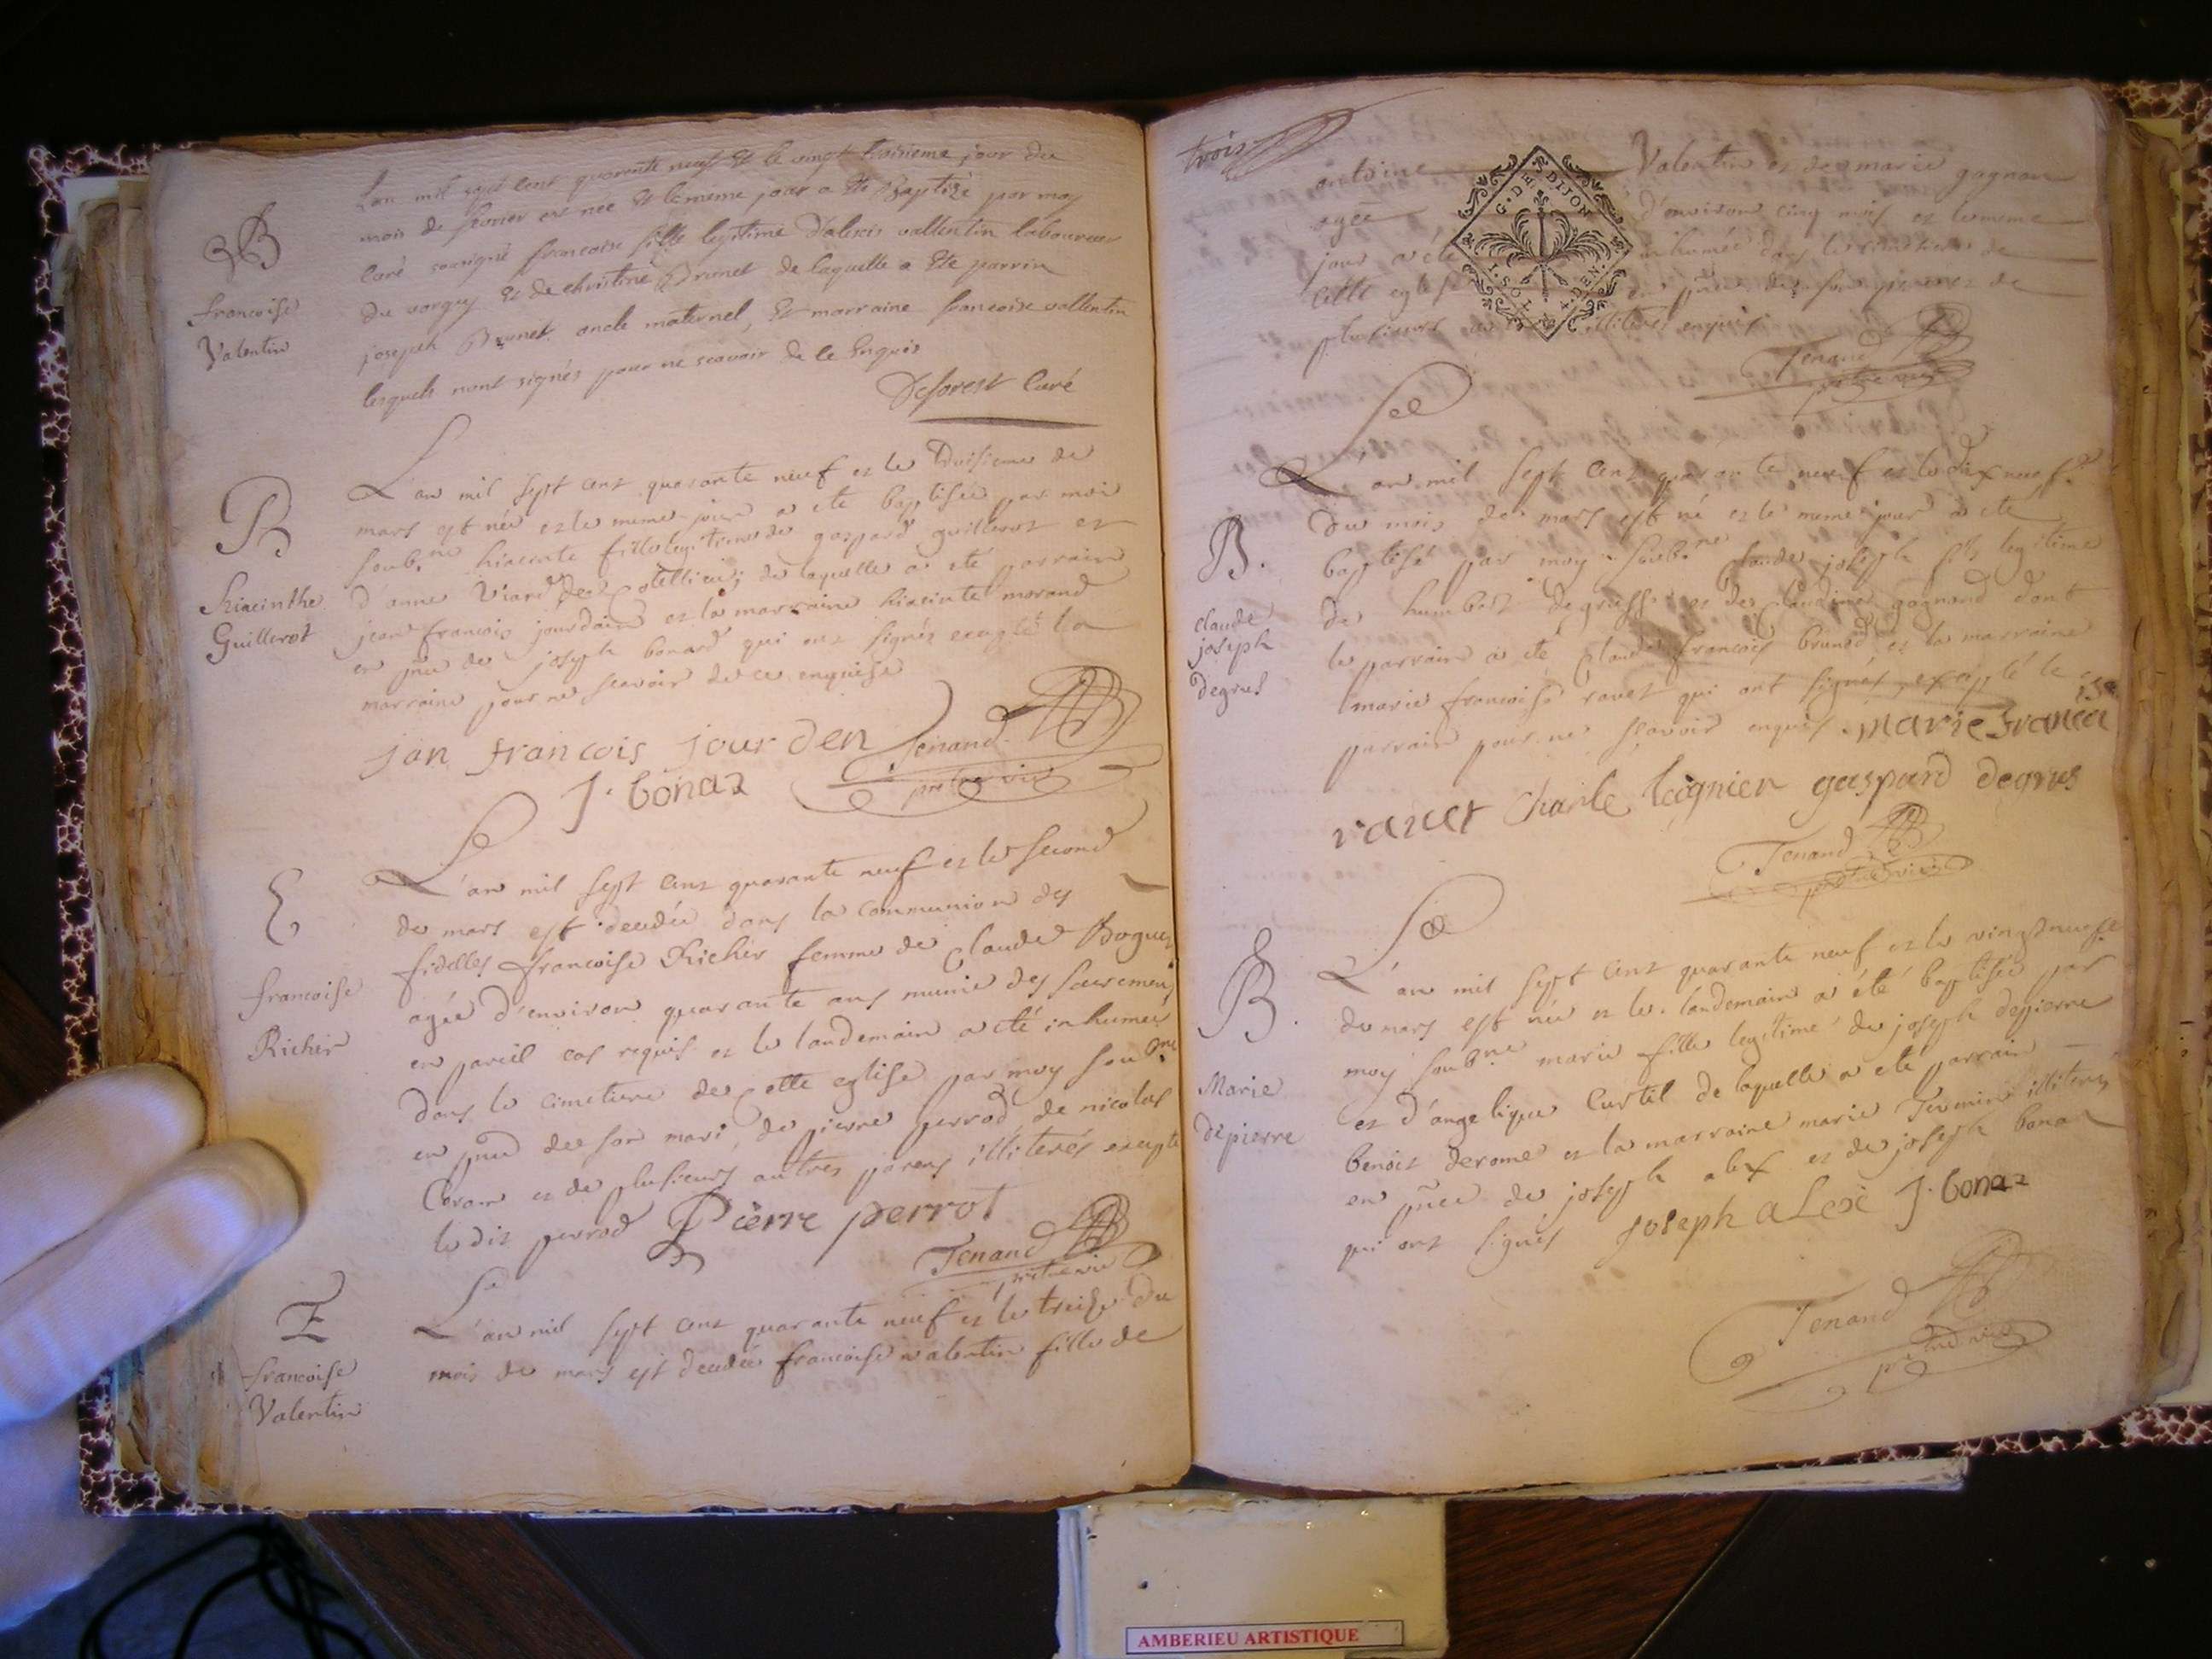 B
francoise
Valentin
Lan mil sept cent quarante neuf Et le vingt troisieme jour du
mois de fevrier est nee Et le meme jour a ete Baptizé par moy
Curé soussigné francoise fille legitime d'alexis vallentin laboureur
du vorgey Et de christine Brunet de laquelle a Ete parrin
joseph Brunet oncle maternel, Et marraine francoise vallentin
lesquels nont signés pour ne scavoir de le Enquis
Deforest Curé
B
hiacinthe
Guillerot
L'an mil sept cent quarante neuf et le troisieme de
mars est née et le meme jour a ete baptisée par moi
soub.né hiacinte fille legitime de gaspard guillerot et
d'anne Viard de Cotellieu; de laquelle a eté parrain
jean francois jourdain et la marraine hiacinte morand
en pñce de joseph bonard qui ont signés excepté la
marraine pour ne scavoir de ce enquise
jan francois jourden
Tenand
J. bonaz
pretre vic
E
francoise
Richer
L'an mil sept cent quarante neuf et le second
de mars est decedée dans la communion des
fidelles francoise Richer femme de Claude Boguet
agée d'environ quarante ans munie des sacremens
en pareil cas requis et le landemain a eté inhumée
dans le cimetiere de Cette eglise par moy soub.né
en pñce de son mari, de pierre perrod, de nicolas
et de plusieurs autres parens illiterés excepté
le dit perrod Pierre perrot
Tenand
pretre vic
E
francoise
Valentin
L'an mil sept cent quarante neuf et le treize du
mois de mars est decedée francoise valentin fille de
trois
antoine Valentin et de marie gagnon
agée d'environ cinq mois et le meme
jour a eté inhumée dans le cimetiere de
cette eglise en pñce de son pere et de
plusieurs autres illiterés enquis
G. DE DIJON
I. SOL. 4. DEN.
Tenand
pretre vic
B.
claude
joseph
degrus
L'an mil sept cent quarante neuf et le dix neuf.e
du mois de mars est né et le meme jour a ete
baptisé par moy soub.né Claude joseph fils legitime
de humbert degruss et de Claudine gagnand dont
le parrain a eté Claude francois brunod et la marraine
marie francoise ravet qui ont signés, excepté le
parrain pour ne scavoir enquis. marie francoi
ise
ravet Charle lagnier gaspard degrus
Tenand
pretre vic
B.
Marie
depierre
L'an mil sept cent quarante neuf et le vingtneuf.e
de mars est née et le landemain a été baptisée par
moy soub.né marie fille legitime de joseph depierre
et d'angelique Curtil de laquelle a eté parrain
benoit derome et la marraine marie Tenin illiteres
en pñce de joseph alex et de joseph bona
qui ont signés joseph aLexe J. bonaz
Tenand
pretre vic
AMBERIEU ARTISTIQUE